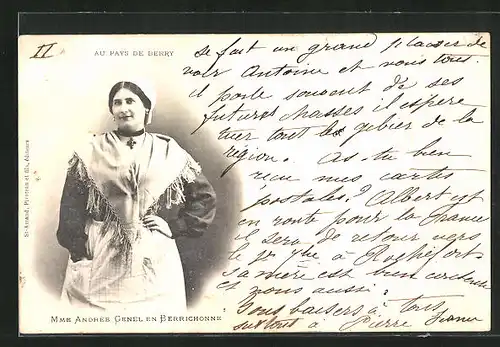 II
AU PAYS DE BERRY
se fait un grand plaisir de
voir Antoine et nous tous.
il parle souvent de ses
futures chasses il espère
tuer tout le gibier de la
région. As-tu bien
reçu mes cartes
postales? Albert est
en route pour la France
il sera de retour vers
le 1er à Rochefort
sa mère est bien contente
et nous aussi.
Bons baisers à tous
surtout à Pierre
MME ANDRÉE GENEL EN BERRICHONNE